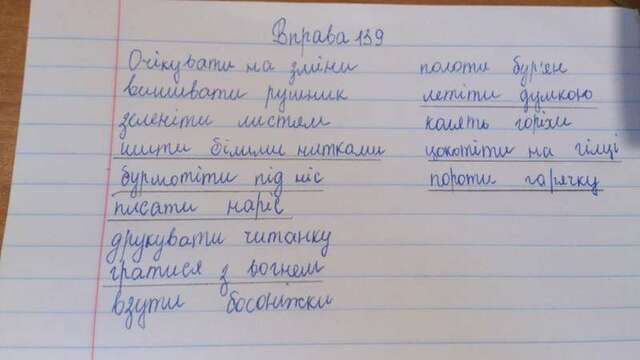 Вправа 139
Очікувати на зміни
вишивати рушник
зеленіти листям
шити білими нитками
бурмотіти під ніс
писати нарис
друкувати читанку
гратися з вогнем
взути босоніжки
полоти бур'ян
летіти думкою
колять горіхи
цокотіти на гілці
пороти гарячку